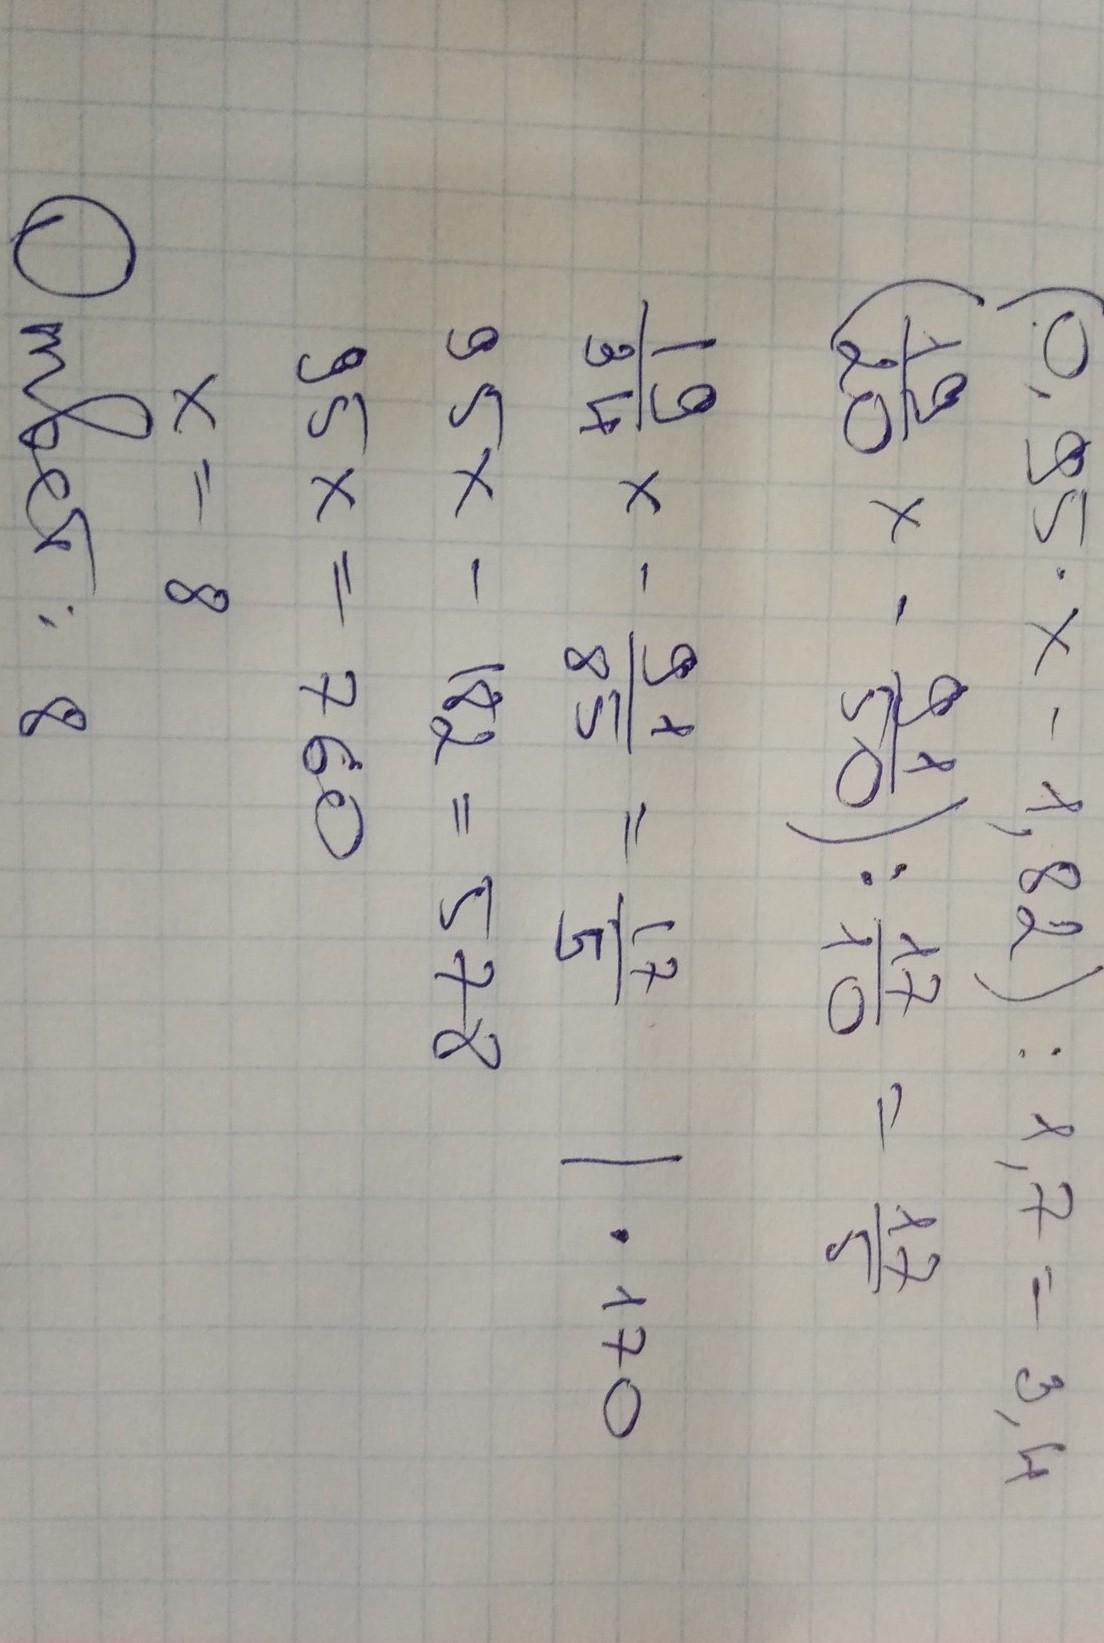 (0,95·x-1,82):1,7=3,4
(19/20 x - 91/50) : 17/10 = 17/5
19/34 x - 91/85 = 17/5 | · 170
95x - 182 = 578
95x = 760
x = 8
Ответ: 8